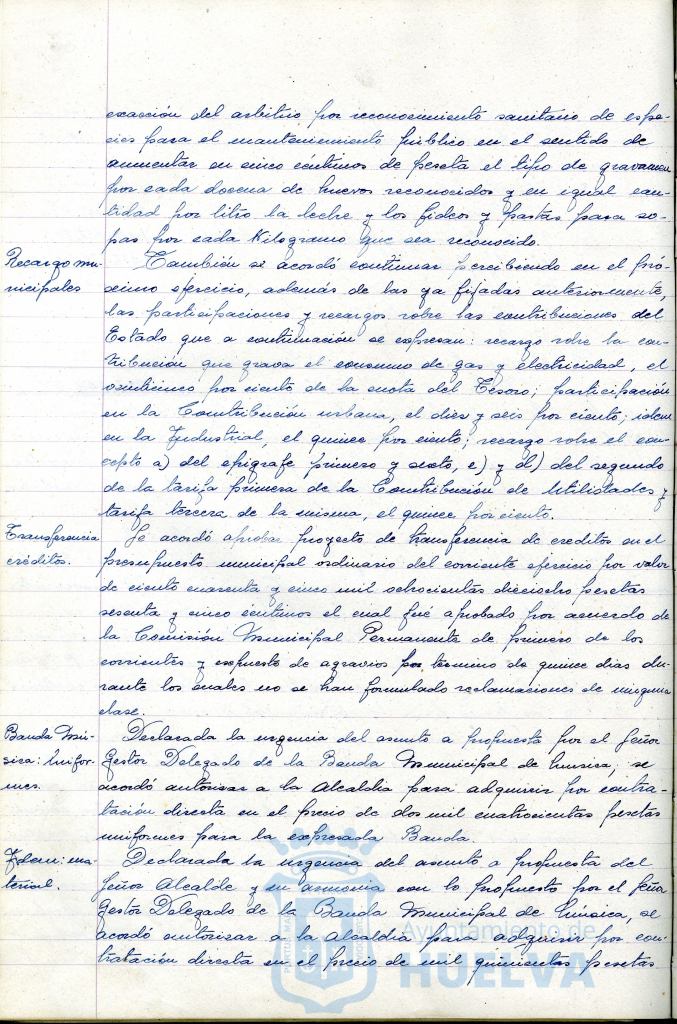 exacción del arbitrio por reconocimiento sanitario de espe-
cies para el mantenimiento público en el sentido de
aumentar en cinco céntimos de peseta el tipo de gravamen
por cada docena de huevos reconocidos y en igual can-
tidad por litro la leche y los fideos y pastas para so-
pas por cada Kilogramo que sea reconocido.
Recargo mu-
nicipales
También se acordó continuar percibiendo en el pró-
ximo ejercicio, además de las ya fijadas anteriormente,
las participaciones y recargos sobre las contribuciones del
Estado que a continuación se expresan: recargo sobre la con-
tribución que grava el consumo de gas y electricidad, el
por ciento de la cuota del Tesoro; participación
en la Contribución urbana, el diez y seis por ciento; idem
en la Industrial, el quince por ciento; recargo sobre el con-
cepto a) del epígrafe primero y sexto, c) y d) del segundo
de la tarifa primera de la Contribución de Utilidades y
tarifa tercera de la misma, el quince por ciento.
Transferencia
créditos.
Se acordó aprobar proyecto de transferencia de creditos en el
presupuesto municipal ordinario del corriente ejercicio por valor
de ciento cuarenta y cinco mil ochocientas dieciocho pesetas
sesenta y cinco céntimos el cual fué aprobado por acuerdo de
la Comisión Municipal Permanente de primero de los
corrientes y expuesto de agravios por termino de quince dias du-
rante los cuales no se han formulado reclamaciones de ninguna
clase.
Banda Mú-
sica: Unifor-
mes.
Declarada la urgencia del asunto a propuesta por el Señor
Gestor Delegado de la Banda Municipal de Música, se
acordó autorizar a la Alcaldia para adquirir por contra-
tación directa en el precio de dos mil cuatrocientas pesetas
uniformes para la expresada Banda.
Idem: ma-
terial.
Declarada la urgencia del asunto a propuesta del
Señor Alcalde y en armonia con lo propuesto por el Señor
Gestor Delegado de la Banda Municipal de Música, se
acordó autorizar a la Alcaldia para adquirir por con-
tratación directa en el precio de mil quinientas pesetas
Ayuntamiento de
HUELVA